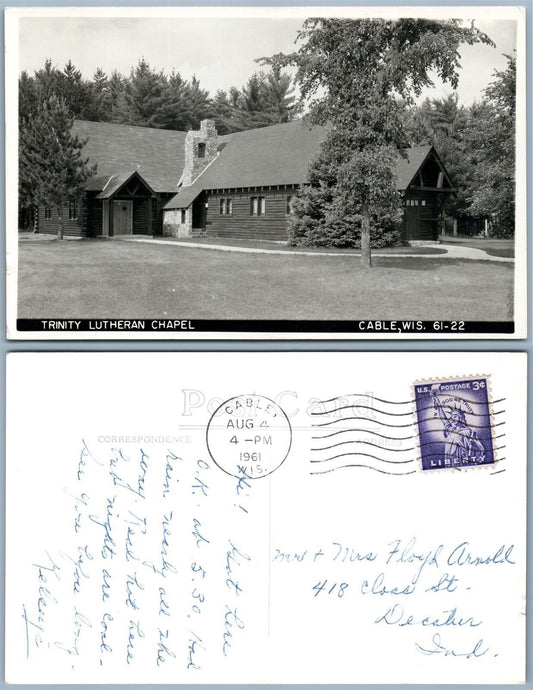 TRINITY LUTHERAN CHAPEL
CABLE, WIS. 61-22
Post Card
CORRESPONDENCE
ADDRESS
CABLEY
AUG 4
4-PM
1961
WIS.
U.S. POSTAGE 3¢
IN GOD WE TRUST
LIBERTY
Hi! Got here
O.K. at 5:30. Had
rain nearly all the
way. Real hot here
but nights are cool-
See you before long.
Kelsey's
Mr + Mrs Floyd Arnold
418 Closs St.
Decatur
Ind.